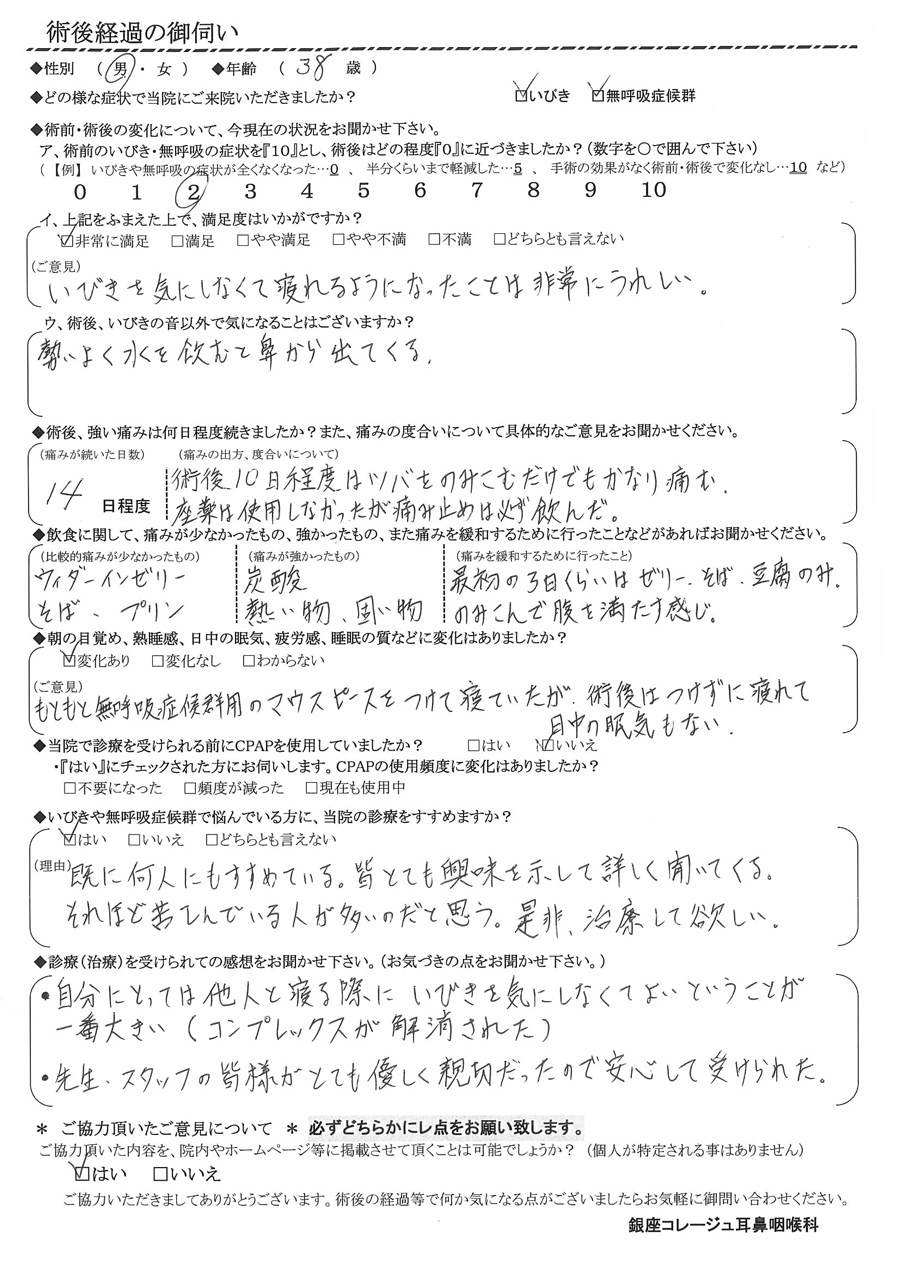 術後経過の御伺い
◆性別 (男・女) ◆年齢 (38歳)
◆どの様な症状で当院にご来院いただきましたか? ☑いびき ☑無呼吸症候群
◆術前・術後の変化について、今現在の状況をお聞かせ下さい。
ア、術前のいびき・無呼吸の症状を『10』とし、術後はどの程度『0』に近づきましたか?(数字を〇で囲んで下さい)
(【例】 いびきや無呼吸の症状が全くなくなった…0 、 半分くらいまで軽減した…5 、 手術の効果がなく術前・術後で変化なし…10 など)
0 1 2 3 4 5 6 7 8 9 10
イ、上記をふまえた上で、満足度はいかがですか?
☑非常に満足 □満足 □やや満足 □やや不満 □不満 □どちらとも言えない
(ご意見)
いびきを気にしなくて寝れるようになったことは非常にうれしい。
ウ、術後、いびきの音以外で気になることはございますか?
勢いよく水を飲むと鼻から出てくる.
◆術後、強い痛みは何日程度続きましたか?また、痛みの度合いについて具体的なご意見をお聞かせください。
(痛みが続いた日数) (痛みの出方、度合いについて)
14 日程度
術後10日程度はツバをのみこむだけでもかなり痛む.
座薬は使用しなかったが痛み止めは必ず飲んだ。
◆飲食に関して、痛みが少なかったもの、強かったもの、また痛みを緩和するために行ったことなどがあればお聞かせください。
(比較的痛みが少なかったもの) (痛みが強かったもの) (痛みを緩和するために行ったこと)
ウィダーインゼリー 炭酸 最初の3日くらいはゼリー、そば、豆腐のみ.
そば、プリン 熱い物、固い物 のみこんで腹を満たす感じ。
◆朝の目覚め、熟睡感、日中の眠気、疲労感、睡眠の質などに変化はありましたか?
☑変化あり □変化なし □わからない
(ご意見)
もともと無呼吸症候群用のマウスピースをつけて寝ていたが、術後はつけずに寝れて
日中の眠気もない.
◆当院で診療を受けられる前にCPAPを使用していましたか? □はい ☑いいえ
・『はい』にチェックされた方にお伺いします。CPAPの使用頻度に変化はありましたか?
□不要になった □頻度が減った □現在も使用中
◆いびきや無呼吸症候群で悩んでいる方に、当院の診療をすすめますか?
☑はい □いいえ □どちらとも言えない
(理由) 既に何人にもすすめている。皆とても興味を示して詳しく聞いてくる。
それほど苦しんでいる人が多いのだと思う。是非、治療して欲しい.
◆診療(治療)を受けられての感想をお聞かせ下さい。(お気づきの点をお聞かせ下さい。)
・自分にとっては他人と寝る際にいびきを気にしなくてよいということが
一番大きい(コンプレックスが解消された)
・先生、スタッフの皆様がとても優しく親切だったので安心して受けられた。
* ご協力頂いたご意見について * 必ずどちらかにレ点をお願い致します。
ご協力頂いた内容を、院内やホームページ等に掲載させて頂くことは可能でしょうか? (個人が特定される事はありません)
☑はい □いいえ
ご協力いただきましてありがとうございます。術後の経過等で何か気になる点がございましたらお気軽に御問い合わせください。
銀座コレージュ耳鼻咽喉科